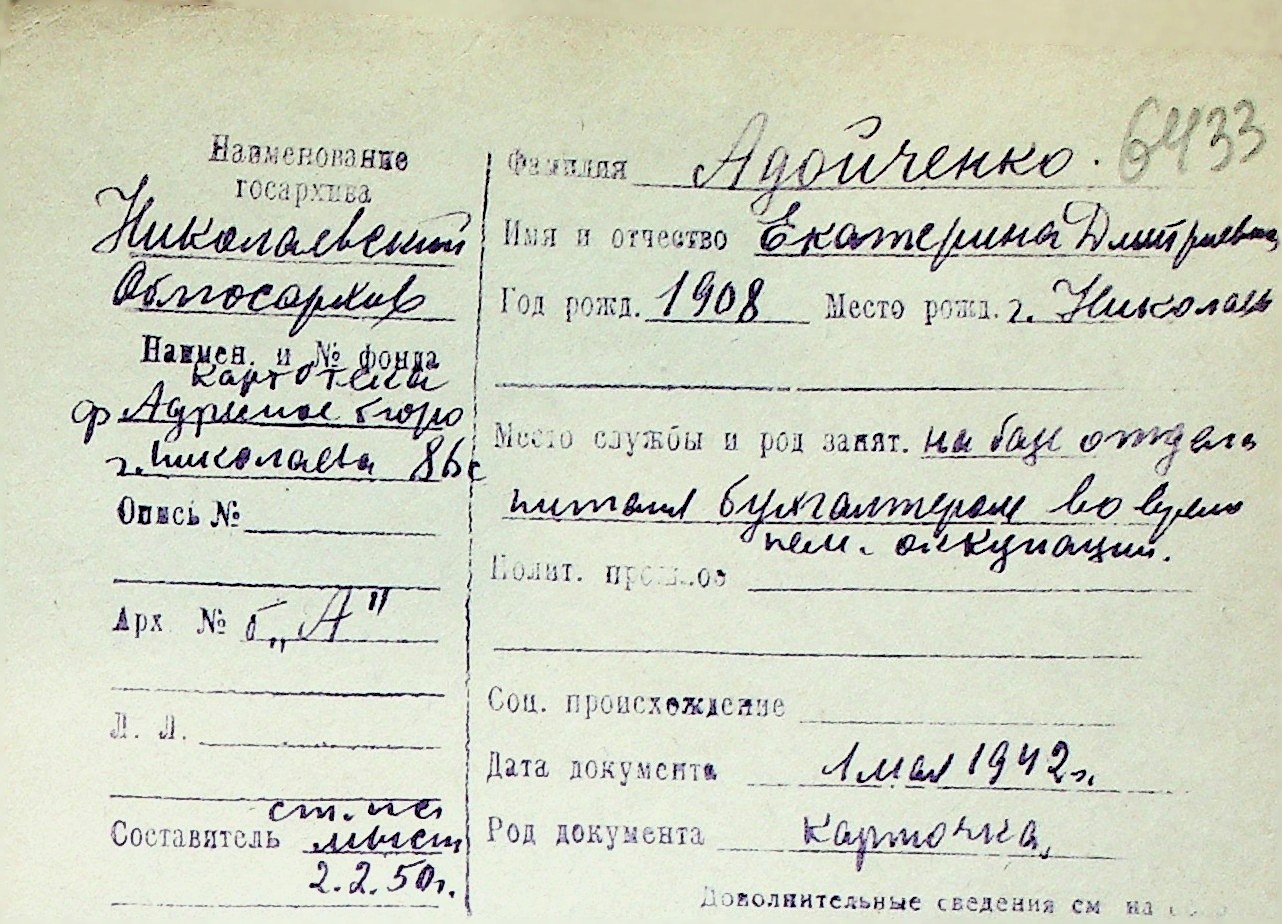 6433
Наименование
госархива
Николаевский
Облгосархив
Наимен. и № фонда
картотека
ф Адресное бюро
г. Николаева 86с
Опись №
Арх. № б. „А"
Л. Л.
Составитель
2.2.50г.
Фамилия Адойченко.
Имя и отчество Екатерина Дмитриевна
Год рожд. 1908 Место рожд. г. Николаев
Место службы и род занят. на базе отдела
питания бухгалтером во время
нем. оккупации.
Полит. прошлое
Соц. происхождение
Дата документа 1 мая 1942 г.
Род документа карточка,
Дополнительные сведения см на